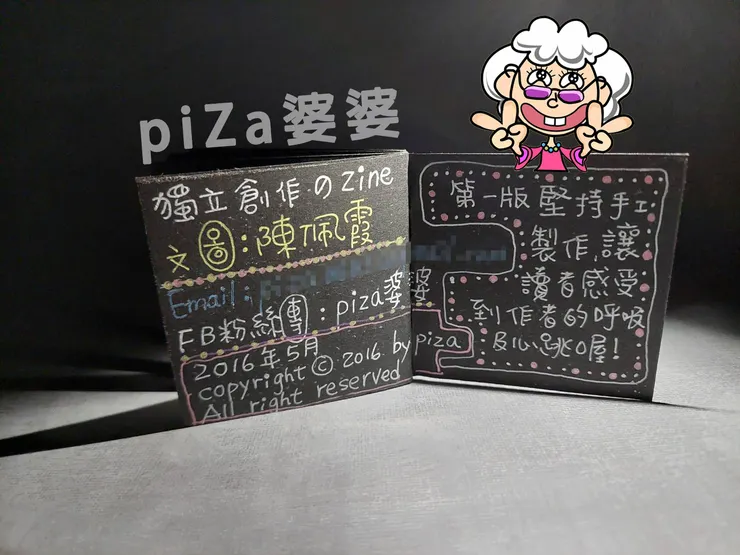 piZa婆婆
獨立創作の zine
文圖:陳佩霞
Email:
FB粉絲團:piza婆婆
2016年5月
copyright © 2016 by piza
All right reserved
第一版堅持手工
製作,讓
讀者感受
到作者的呼吸
及心跳喔!